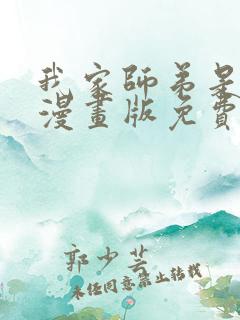 我家師弟是
漫畫版免費
郭少芸
未經同意禁止轉載